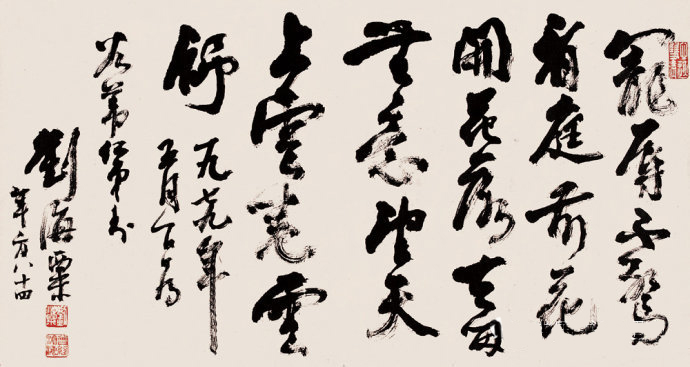 寵辱不驚
看庭前花
開花落去留
無意望天
上雲卷雲
舒
一九七九年
五月
谷葦仁弟书
劉海粟
年方八十四